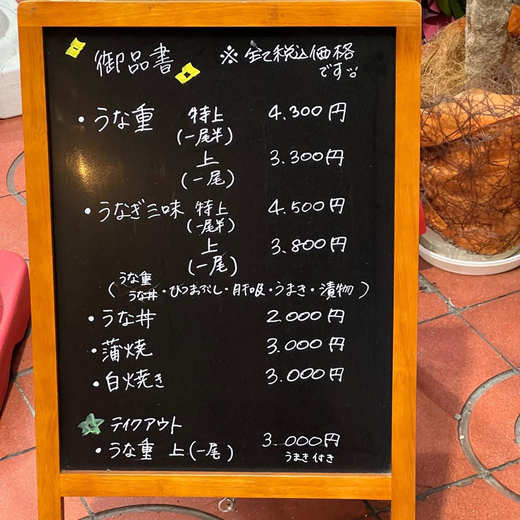 御品書 ※全て税込価格
です
・うな重 特上 4.300円
(一尾半)
上 3.300円
(一尾)
・うなぎ三味 特上 4.500円
(一尾半)
上 3.800円
(一尾)
うな重
(うな丼・ひつまぶし・肝吸・うまき・漬物)
・うな丼 2.000円
・蒲焼 3.000円
・白焼き 3.000円
テイクアウト
・うな重 上(一尾) 3.000円
うまき付き